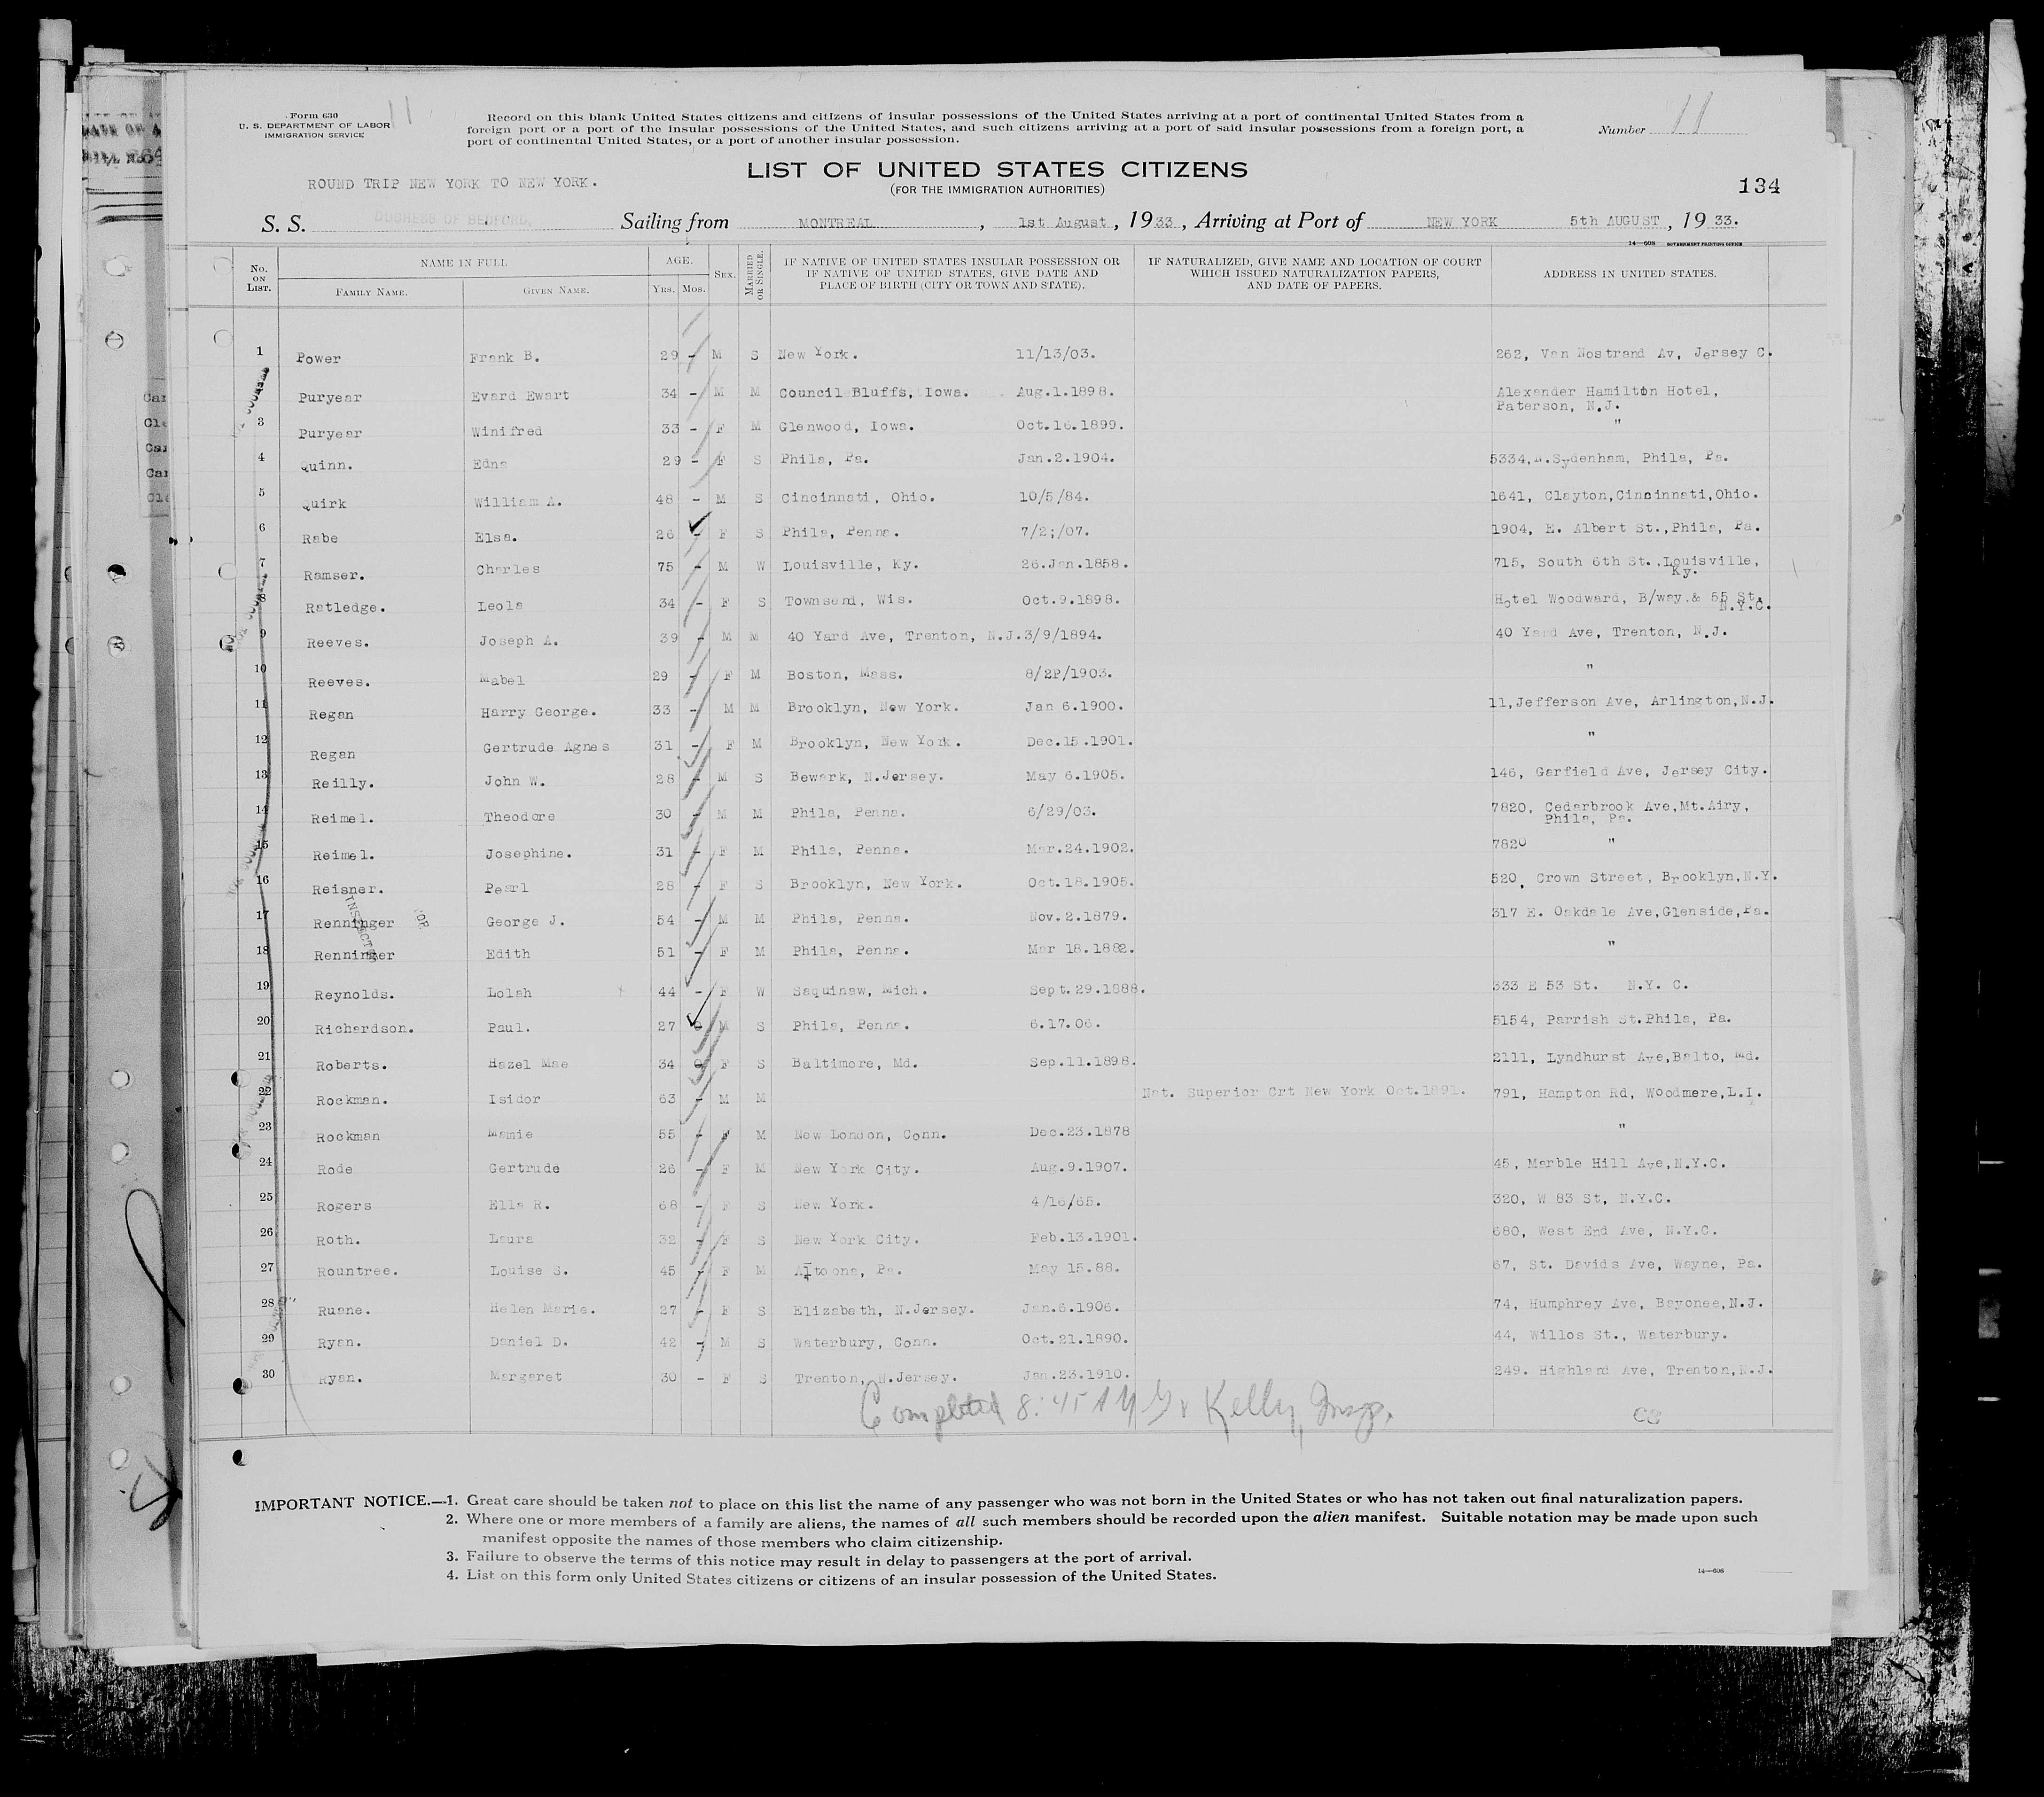 Form 630
U. S. DEPARTMENT OF LABOR
IMMIGRATION SERVICE
11
Record on this blank United States citizens and citizens of insular possessions of the United States arriving at a port of continental United States from a
foreign port or a port of the insular possessions of the United States, and such citizens arriving at a port of said insular possessions from a foreign port, a
port of continental United States, or a port of another insular possession.
Number 11
LIST OF UNITED STATES CITIZENS
(FOR THE IMMIGRATION AUTHORITIES)
ROUND TRIP NEW YORK TO NEW YORK.
134
S. S. DUCHESS OF BEDFORD. Sailing from MONTREAL, 1st August, 1933, Arriving at Port of NEW YORK 5th AUGUST, 1933.
14—608 GOVERNMENT PRINTING OFFICE
No. ON LIST. NAME IN FULL FAMILY NAME. GIVEN NAME. AGE. YRS. MOS. SEX. MARRIED OR SINGLE. IF NATIVE OF UNITED STATES INSULAR POSSESSION OR IF NATIVE OF UNITED STATES, GIVE DATE AND PLACE OF BIRTH (CITY OR TOWN AND STATE). IF NATURALIZED, GIVE NAME AND LOCATION OF COURT WHICH ISSUED NATURALIZATION PAPERS, AND DATE OF PAPERS. ADDRESS IN UNITED STATES.
1 Power Frank B. 29 - M S New York. 11/13/03. 262, Van Nostrand Av, Jersey C.
Puryear Evard Ewart 34 - M M Council Bluffs, Iowa. Aug.1.1898. Alexander Hamilton Hotel,
Paterson, N.J.
3 Puryear Winifred 33 - F M Glenwood, Iowa. Oct.16.1899. "
4 Quinn. Edna 29 - F S Phila, Pa. Jan.2.1904. 5334,N.Sydenham, Phila, Pa.
5 Quirk William A. 48 - M S Cincinnati, Ohio. 10/5/84. 1641, Clayton,Cincinnati,Ohio.
6 Rabe Elsa. 26 - F S Phila, Penna. 7/2;/07. 1904, E. Albert St.,Phila, Pa.
7 Ramser. Charles 75 - M W Louisville, Ky. 26.Jan.1858. 715, South 6th St.,Louisville,
Ky.
8 Ratledge. Leola 34 - F S Townsend, Wis. Oct.9.1898. Hotel Woodward, B/way.& 55 St.
N.Y.C.
9 Reeves. Joseph A. 39 - M M 40 Yard Ave, Trenton, N.J.3/9/1894. 40 Yard Ave, Trenton, N.J.
10 Reeves. Mabel 29 - F M Boston, Mass. 8/22/1903. "
11 Regan Harry George. 33 - M M Brooklyn, New York. Jan 6.1900. 11,Jefferson Ave, Arlington,N.J.
12 Regan Gertrude Agnes 31 - F M Brooklyn, New York. Dec.15.1901. "
13 Reilly. John W. 28 - M S Bewark, N.Jersey. May 6.1905. 146, Garfield Ave, Jersey City.
14 Reimel. Theodore 30 - M M Phila, Penna. 6/29/03. 7820, Cedarbrook Ave,Mt.Airy,
Phila, Pa.
15 Reimel. Josephine. 31 - F M Phila, Penna. Mar.24.1902. 7820 "
16 Reisner. Pearl 28 - F S Brooklyn, New York. Oct.18.1905. 520, Crown Street, Brooklyn,N.Y.
17 Renninger George J. 54 - M M Phila, Penna. Nov.2.1879. 317 E. Oakdale Ave,Glenside,Pa.
18 Renninger Edith 51 - F M Phila, Penna. Mar 18.1882. "
19 Reynolds. Lolah 44 - F W Saquinaw, Mich. Sept.29.1888. 333 E 53 St. N.Y. C.
20 Richardson. Paul. 27 M S Phila, Penna. 6.17.06. 5154, Parrish St.Phila, Pa.
21 Roberts. Hazel Mae 34 F S Baltimore, Md. Sep.11.1898. 2111, Lyndhurst Ave,Balto, Md.
22 Rockman. Isidor 63 - M M Nat. Superior Crt New York Oct.1891. 791, Hampton Rd, Woodmere,L.I.
23 Rockman Mamie 55 - F M New London, Conn. Dec.23.1878 "
24 Rode Gertrude 26 - F M New York City. Aug.9.1907. 45, Marble Hill Ave,N.Y.C.
25 Rogers Ella R. 68 - F S New York. 4/16/65. 320, W 83 St, N.Y.C.
26 Roth. Laura 32 - F S New York City. Feb.13.1901. 680, West End Ave, N.Y.C.
27 Rountree. Louise S. 45 - F M Altoona, Pa. May 15.88. 67, St. Davids Ave, Wayne, Pa.
28 Ruane. Helen Marie. 27 - F S Elizabeth, N.Jersey. Jan.6.1906. 74, Humphrey Ave, Bayonee,N.J.
29 Ryan. Daniel D. 42 - M S Waterbury, Conn. Oct.21.1890. 44, Willos St., Waterbury.
30 Ryan. Margaret 30 - F S Trenton, N.Jersey. Jan.23.1910. 249. Highland Ave, Trenton,N.J.
Completed 8:45 AM Kelly, Insp.
IMPORTANT NOTICE.—1. Great care should be taken not to place on this list the name of any passenger who was not born in the United States or who has not taken out final naturalization papers.
2. Where one or more members of a family are aliens, the names of all such members should be recorded upon the alien manifest. Suitable notation may be made upon such
manifest opposite the names of those members who claim citizenship.
3. Failure to observe the terms of this notice may result in delay to passengers at the port of arrival.
4. List on this form only United States citizens or citizens of an insular possession of the United States.
14—608